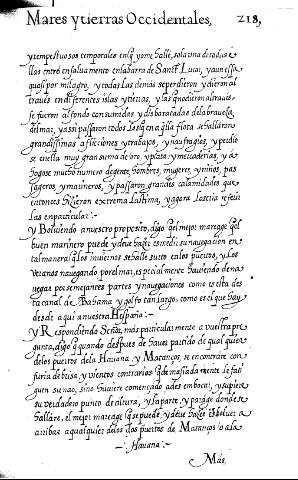 Mares y tierras Occidentales, 218,
y tempestuosos temporales en q̃ yo me hallé, sola una de todas e
llas entró en salvamento en la barra de Sant Lucar, y aun essa
quasi por milagro, y todas las demas se perdieron y dieron al
través en diferentes islas y tierras, y las q̃ no dieron al través
se fueron al fondo consumidas y disbaratadas de la braveza
del mar, y assi passaron todos los q̃ en aq̃lla flota se hallaron
grandissimas aflictiones y trabajos, y naufragios, y perdio
se en ella muy gran suma de oro, y plata, y mercaderias, y a
hogose mucho numero de gente, hombres, mugeres, y niños, pas
sageros, y marineros, y passaron grandes calamidades que
entonces hizieron extrema lastima, y agora lastima referir
las en particular:~
y Bolviendo a nuestro proposito, digo q̃ el mejor mareage q̃ el
buen marinero puede y deve hazer es medir su navegacion en
tal manera q̃ los inviernos se halle surto en los puertos, y los
Veranos navegando por el mar, especialmente haviendo de na
vegar por semejantes partes y navegaciones como es esta des
ta canal de Bahama y golfo tan largo, como es el que hay
desde aqui a nuestra Hespaña:~
y Respondiendo Señor, mas particularmente a vuestra pre
gunta, digo q̃ quando despues de haver partido de qual quier
de los puertos de la Havana y Matanças, se encontrare con
furia de brisa, y vientos contrarios q̃ demasiadamente le fati
guen su nao, sino huviere començado a desembocar, y supiere
su verdadero punto de altura, y la parte, y parage donde se
hallare, el mejor mareage q̃ se puede, y deve hazer es bolver a
arribar a qualquier de los dos puertos de Matanças o a la
Havana:~
Mas